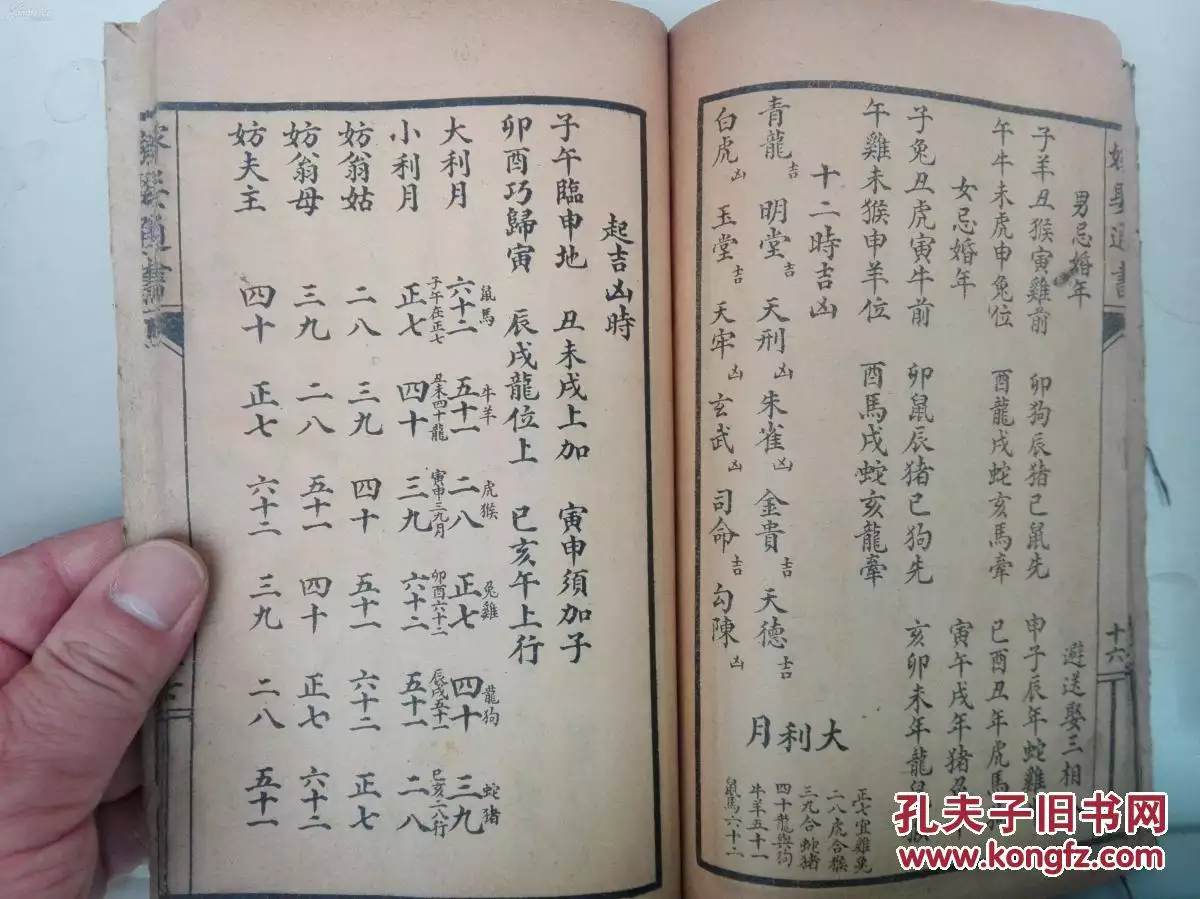 十六
男忌婚年
子羊丑猴寅雞前 卯狗辰猪巳鼠先
午牛未虎申兔位 酉龍戌蛇亥馬牽
女忌婚年
子兔丑虎寅牛前 卯鼠辰猪巳狗先
午雞未猴申羊位 酉馬戌蛇亥龍牽
避送娶三相
申子辰年蛇雞
巳酉丑年虎馬
寅午戌年猪
亥卯未年龍鼠
十二時吉凶
青龍吉 明堂吉 天刑凶 朱雀凶 金貴吉 天德吉
白虎凶 玉堂吉 天牢凶 玄武凶 司命吉 勾陳凶
大利月
正七宜雞兔
二八虎合猴
三九合蛇猪
四十龍與狗
牛羊五十一
鼠馬六十二
起吉凶時
子午臨申地 丑未戌上加 寅申須加子
卯酉巧歸寅 辰戌龍位上 巳亥午上行
鼠馬 牛羊 虎猴 兔雞 龍狗 蛇猪
大利月 六十二 五十一 二八 正七 四十 三九
子午在正七 丑未四十龍 寅申三九月 卯酉六十二 辰戌五十一 巳亥二八行
小利月 正七 四十 三九 六十二 五十一 二八
妨翁姑 二八 三九 四十 五十一 六十二 正七
妨翁母 三九 二八 五十一 四十 正七 六十二
妨夫主 四十 正七 六十二 三九 二八 五十一
孔夫子旧书网
www.kongfz.com